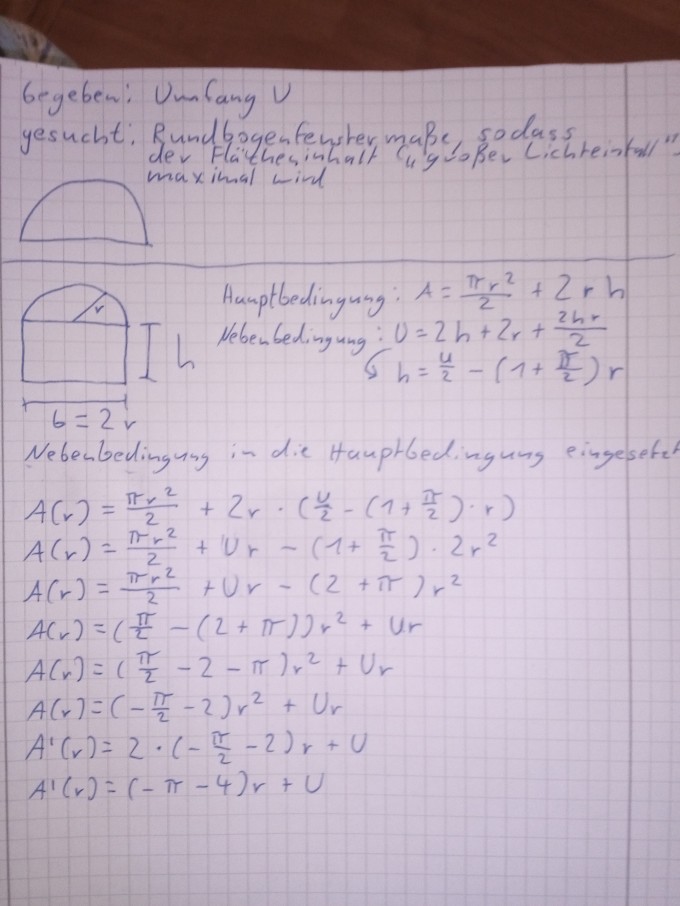 Gegeben: Umfang U
gesucht: Rundbogenfenstermaße, sodass
der Flächeninhalt („großer Lichteinfall")
maximal wird
r
h
b = 2r
Hauptbedingung: A = πr²/2 + 2rh
Nebenbedingung: U = 2h + 2r + 2πr/2
h = U/2 - (1 + π/2) r
Nebenbedingung in die Hauptbedingung eingesetzt
A(r) = πr²/2 + 2r · (U/2 - (1 + π/2) · r)
A(r) = πr²/2 + Ur - (1 + π/2) · 2r²
A(r) = πr²/2 + Ur - (2 + π) r²
A(r) = (π/2 - (2 + π)) r² + Ur
A(r) = (π/2 - 2 - π) r² + Ur
A(r) = (-π/2 - 2) r² + Ur
A'(r) = 2 · (-π/2 - 2) r + U
A'(r) = (-π - 4) r + U